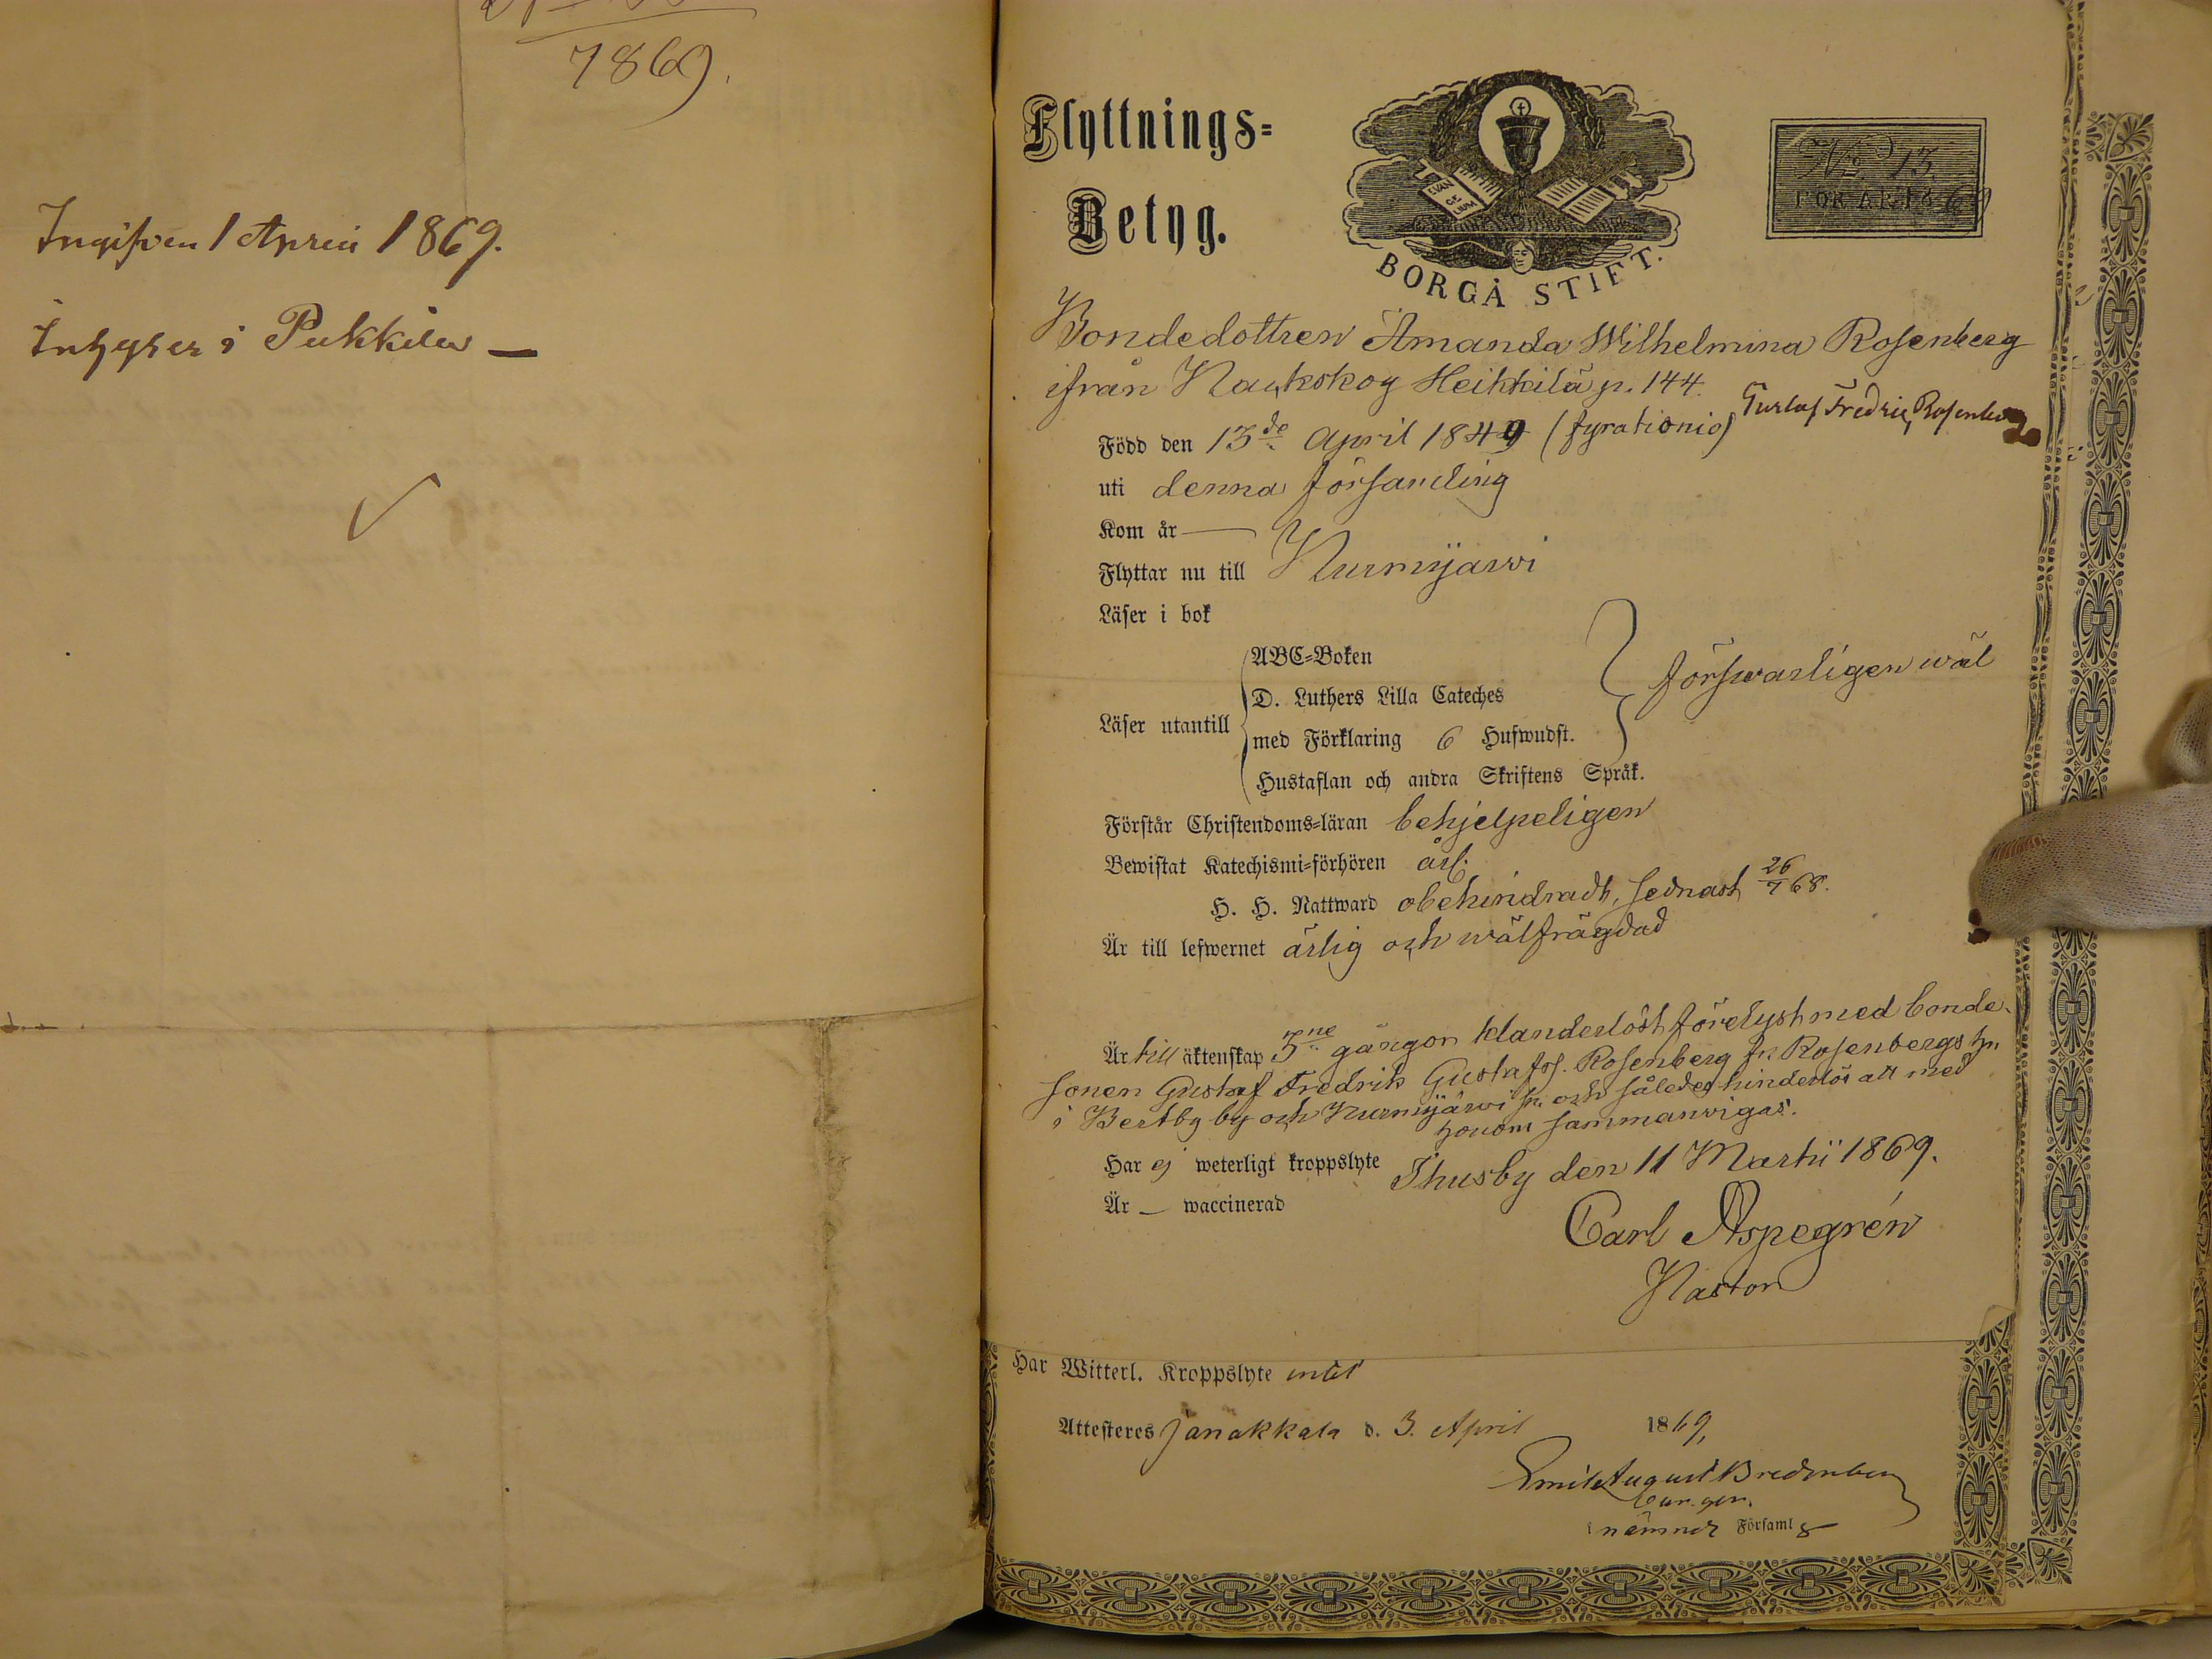 1869.
Ingifven 1 April 1869.
Inhyses i Pukkila —
Flyttnings=
Betyg.
EVAN
GE
LIUM
BORGÅ STIFT.
No 13.
FÖR ÅR 1869
Bondedottren Amanda Wilhelmina Rosenberg
ifrån Nackskog Heikkilä p. 144.
Gustaf Fredric Rosenberg
Född den 13de April 1849 (fyrationio)
uti denna församling
Kom år —
Flyttar nu till Nurmijärwi
Läser i bok
Läser utantill
ABC=Boken
D. Luthers Lilla Cateches
med Förklaring 6 Hufwudst.
Hustaflan och andra Skriftens Språk.
förswarligen wäl
Förstår Christendoms=läran behjelpeligen
Bewistat Katechismi=förhören årl.
H. H. Nattward obehindradt, sednast 26/7 68.
Är till lefwernet ärlig och wälfrägdad
Är till äktenskap 3ne gångor klanderlöst förelyst med bonde-
sonen Gustaf Fredrik Gustafss. Rosenberg fr. Rosenbergs hn
i Bertby by och Nurmijärwi sn och således hinderlös att med
honom sammanwigas.
Har ej weterligt kroppslyte
Thusby den 11 Martii 1869.
Är — waccinerad
Carl Aspegrén
Pastor
Har Witterl. Kroppslyte intet
Attesteres Janakkala d. 3. April 1869,
Emil August Bredenberg
nämnde Församl